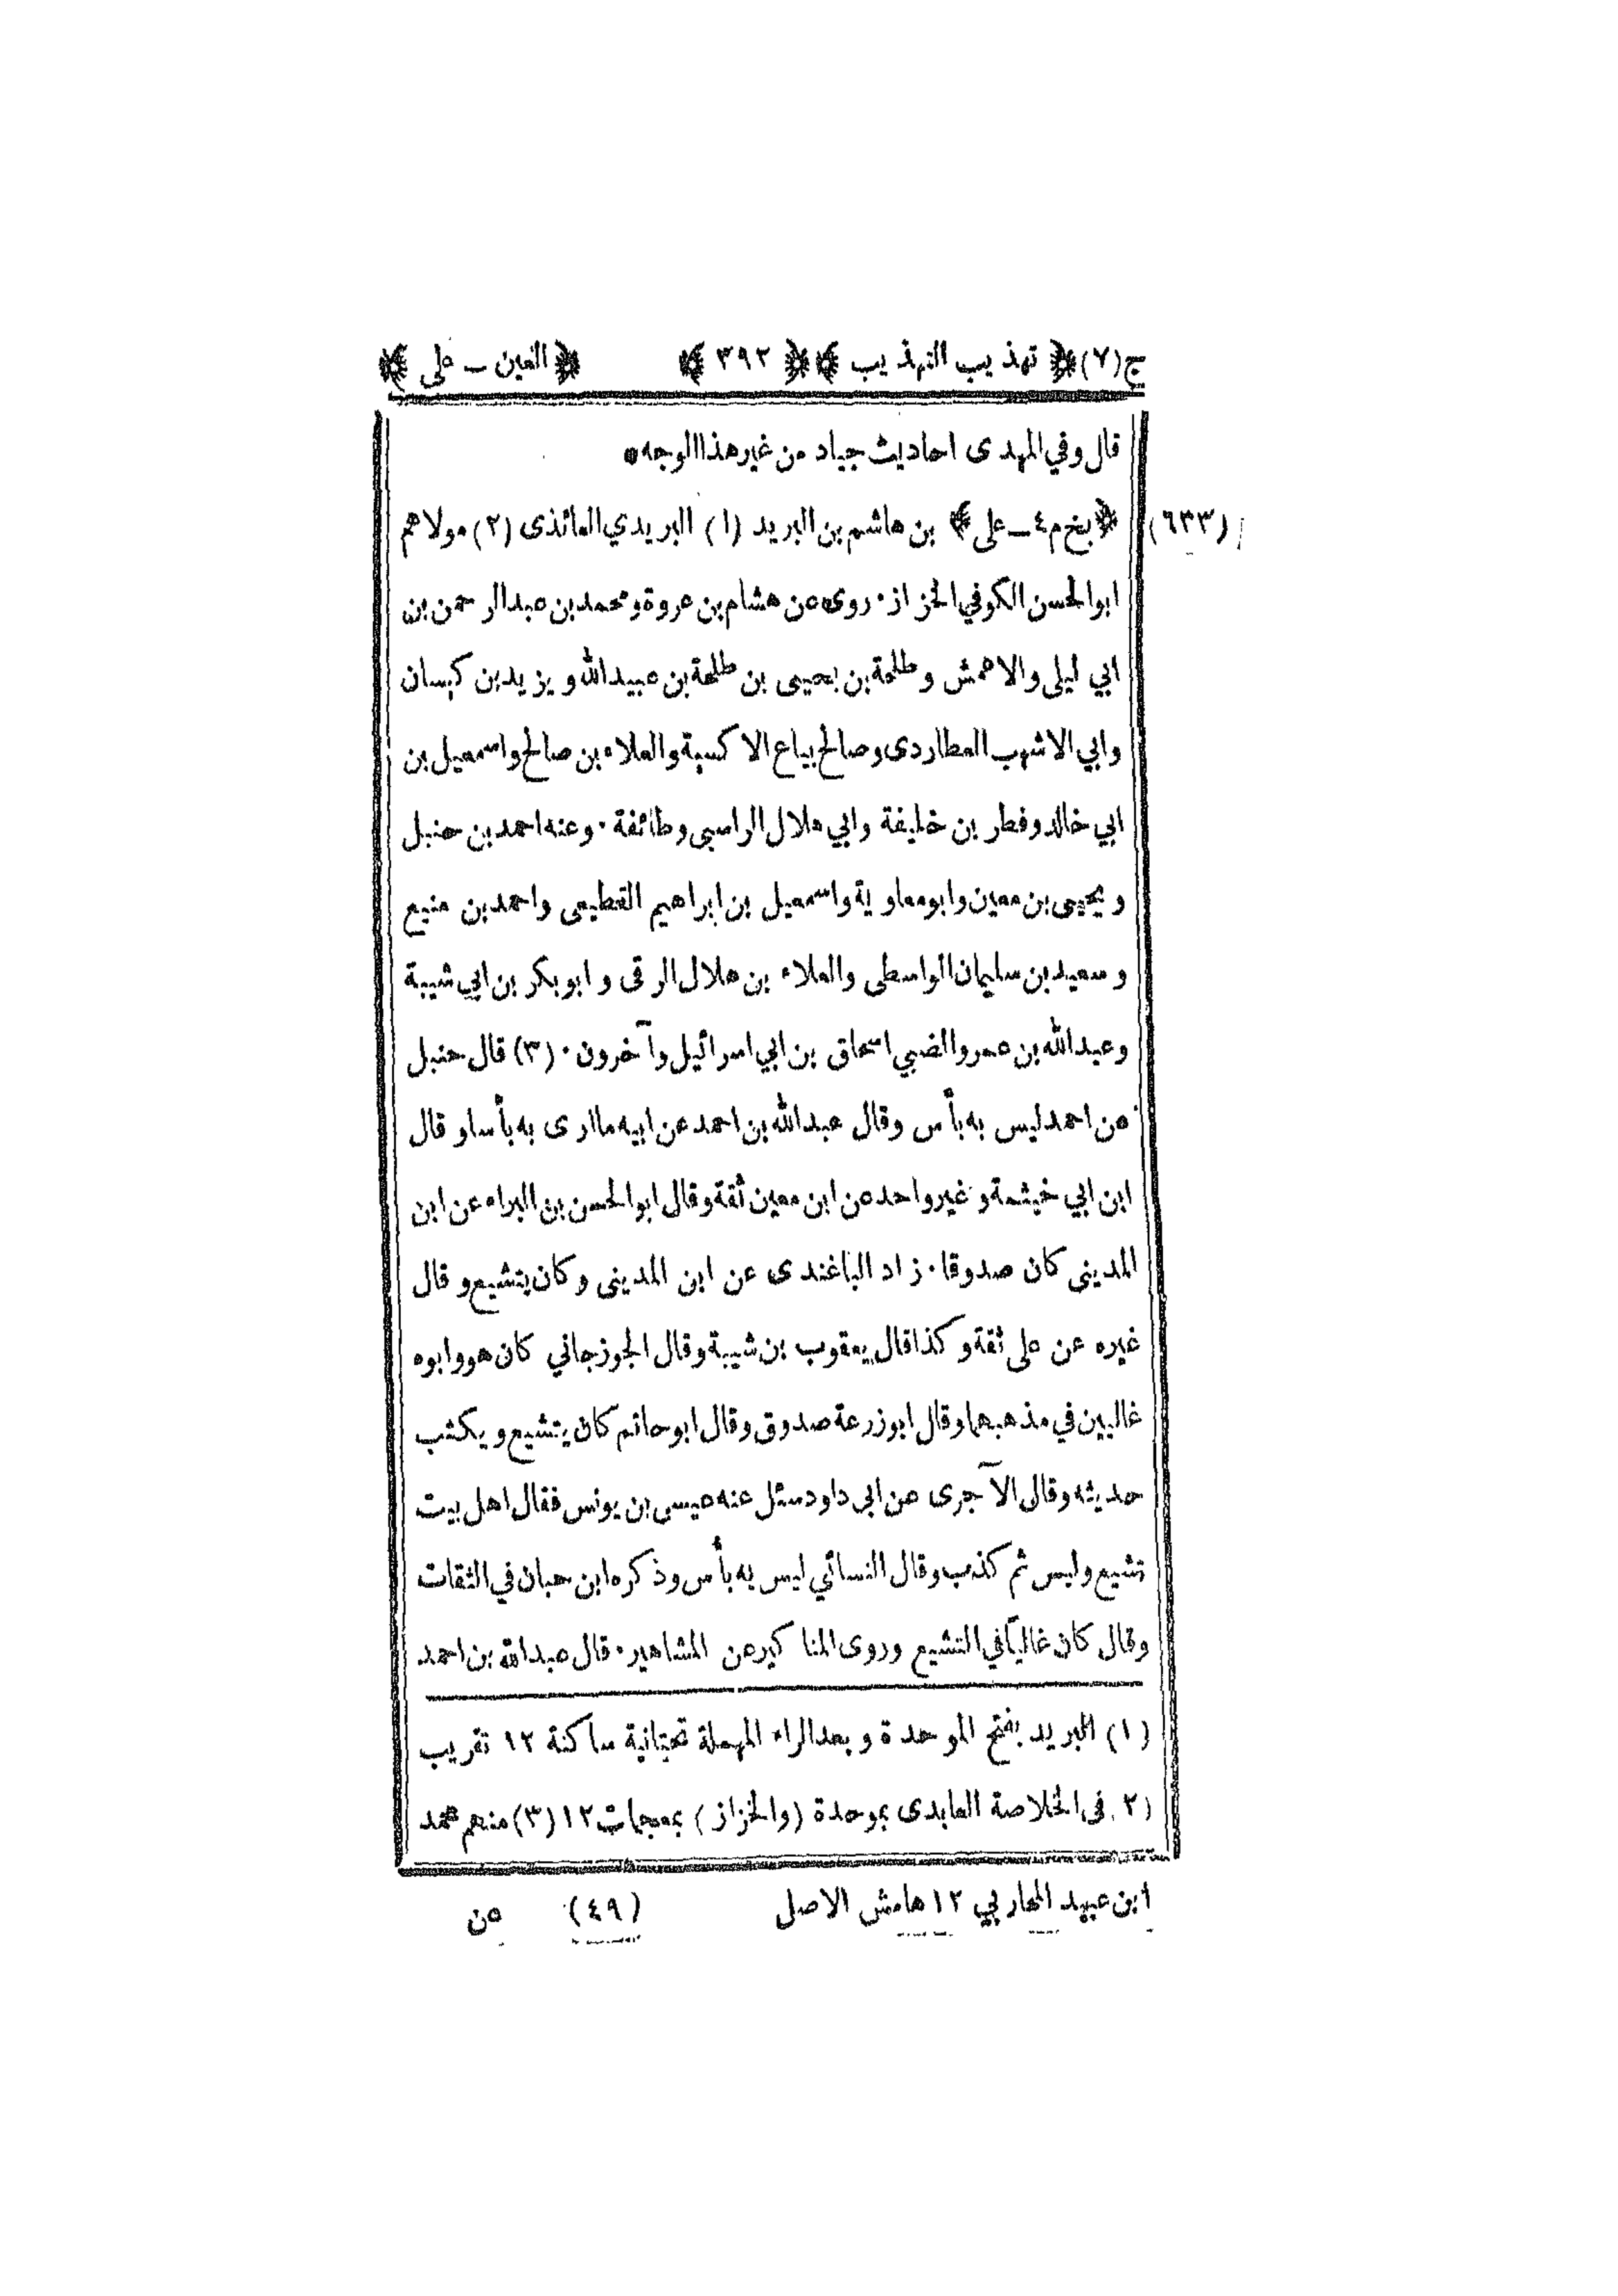 ج (٧) ﴿ تهذيب التهذيب ﴾ ﴿ ٣٩٢ ﴾ ﴿ العين ـ على ﴾
قال وفي المهدى احاديث جياد من غير هذا الوجه *
(٦٣٣) ﴿ بخ م ٤ ـ على ﴾ بن هاشم بن البريد (١) البريدي العائذى (٢) مولاهم
ابو الحسن الكوفي الخزاز ٠ روى عن هشام بن عروة ومحمد بن عبد الرحمن بن
ابي ليلى والاعمش وطلحة بن يحيى بن طلحة بن عبيد الله ويزيد بن كيسان
وابي الاشهب العطاردى وصالح بياع الاكسية والعلاء بن صالح واسمعيل بن
ابي خالد وفطر بن خليفة وابي هلال الراسبى وطائفة ٠ وعنه احمد بن حنبل
ويحيى بن معين وابو معاوية واسمعيل بن ابراهيم القطيعى واحمد بن منيع
وسعيد بن سليمان الواسطى والعلاء بن هلال الرقى وابو بكر بن ابي شيبة
وعبد الله بن عمرو الضبي اسحاق بن ابي اسرائيل وآخرون ٠ (٣) قال حنبل
عن احمد ليس به بأس وقال عبد الله بن احمد عن ابيه ما ارى به بأسا وقال
ابن ابي خيثمة وغير واحد عن ابن معين ثقة وقال ابو الحسن بن البراء عن ابن
المدينى كان صدوقا ٠ زاد الباغندى عن ابن المدينى وكان يتشيع وقال
غيره عن على ثقة وكذا قال يعقوب بن شيبة وقال الجوزجاني كان هو وابوه
غاليين في مذهبهما وقال ابو زرعة صدوق وقال ابو حاتم كان يتشيع ويكتب
حديثه وقال الآجرى عن ابي داود سئل عنه عيسى بن يونس فقال اهل بيت
تشيع وليس ثم كذب وقال النسائي ليس به بأس وذكره ابن حبان في الثقات
وقال كان غاليا في التشيع وروى المناكير عن المشاهير ٠ قال عبد الله بن احمد
(١) البريد بفتح الموحدة وبعد الراء المهملة تحتانية ساكنة ١٢ تقريب
(٢ فى الخلاصة العابدى بموحدة (والخزاز) بمعجمات ١٢ (٣) منهم محمد
ابن عبيد المحاربي ١٢ هامش الاصل (٤٩) عن